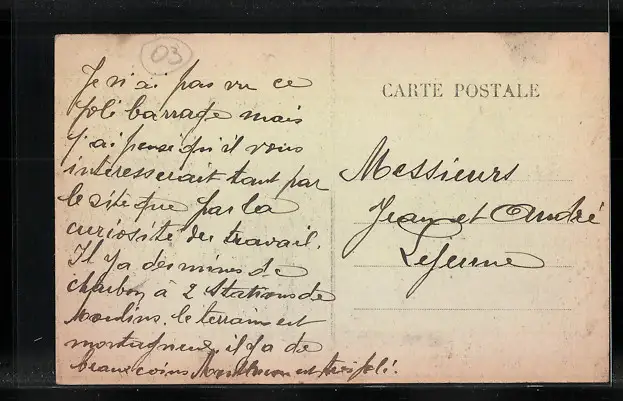 03
Je n'ai pas vu ce
joli barrage mais
j'ai pensé qu'il vous
intéresserait tant par
le site que par la
curiosité du travail.
Il y a des mines de
charbon à 2 stations de
Moulins. le terrain est
montagneux, il y a de
beaux coins Montluçon est très joli.
CARTE POSTALE
Messieurs
Jean et André
Lejeune